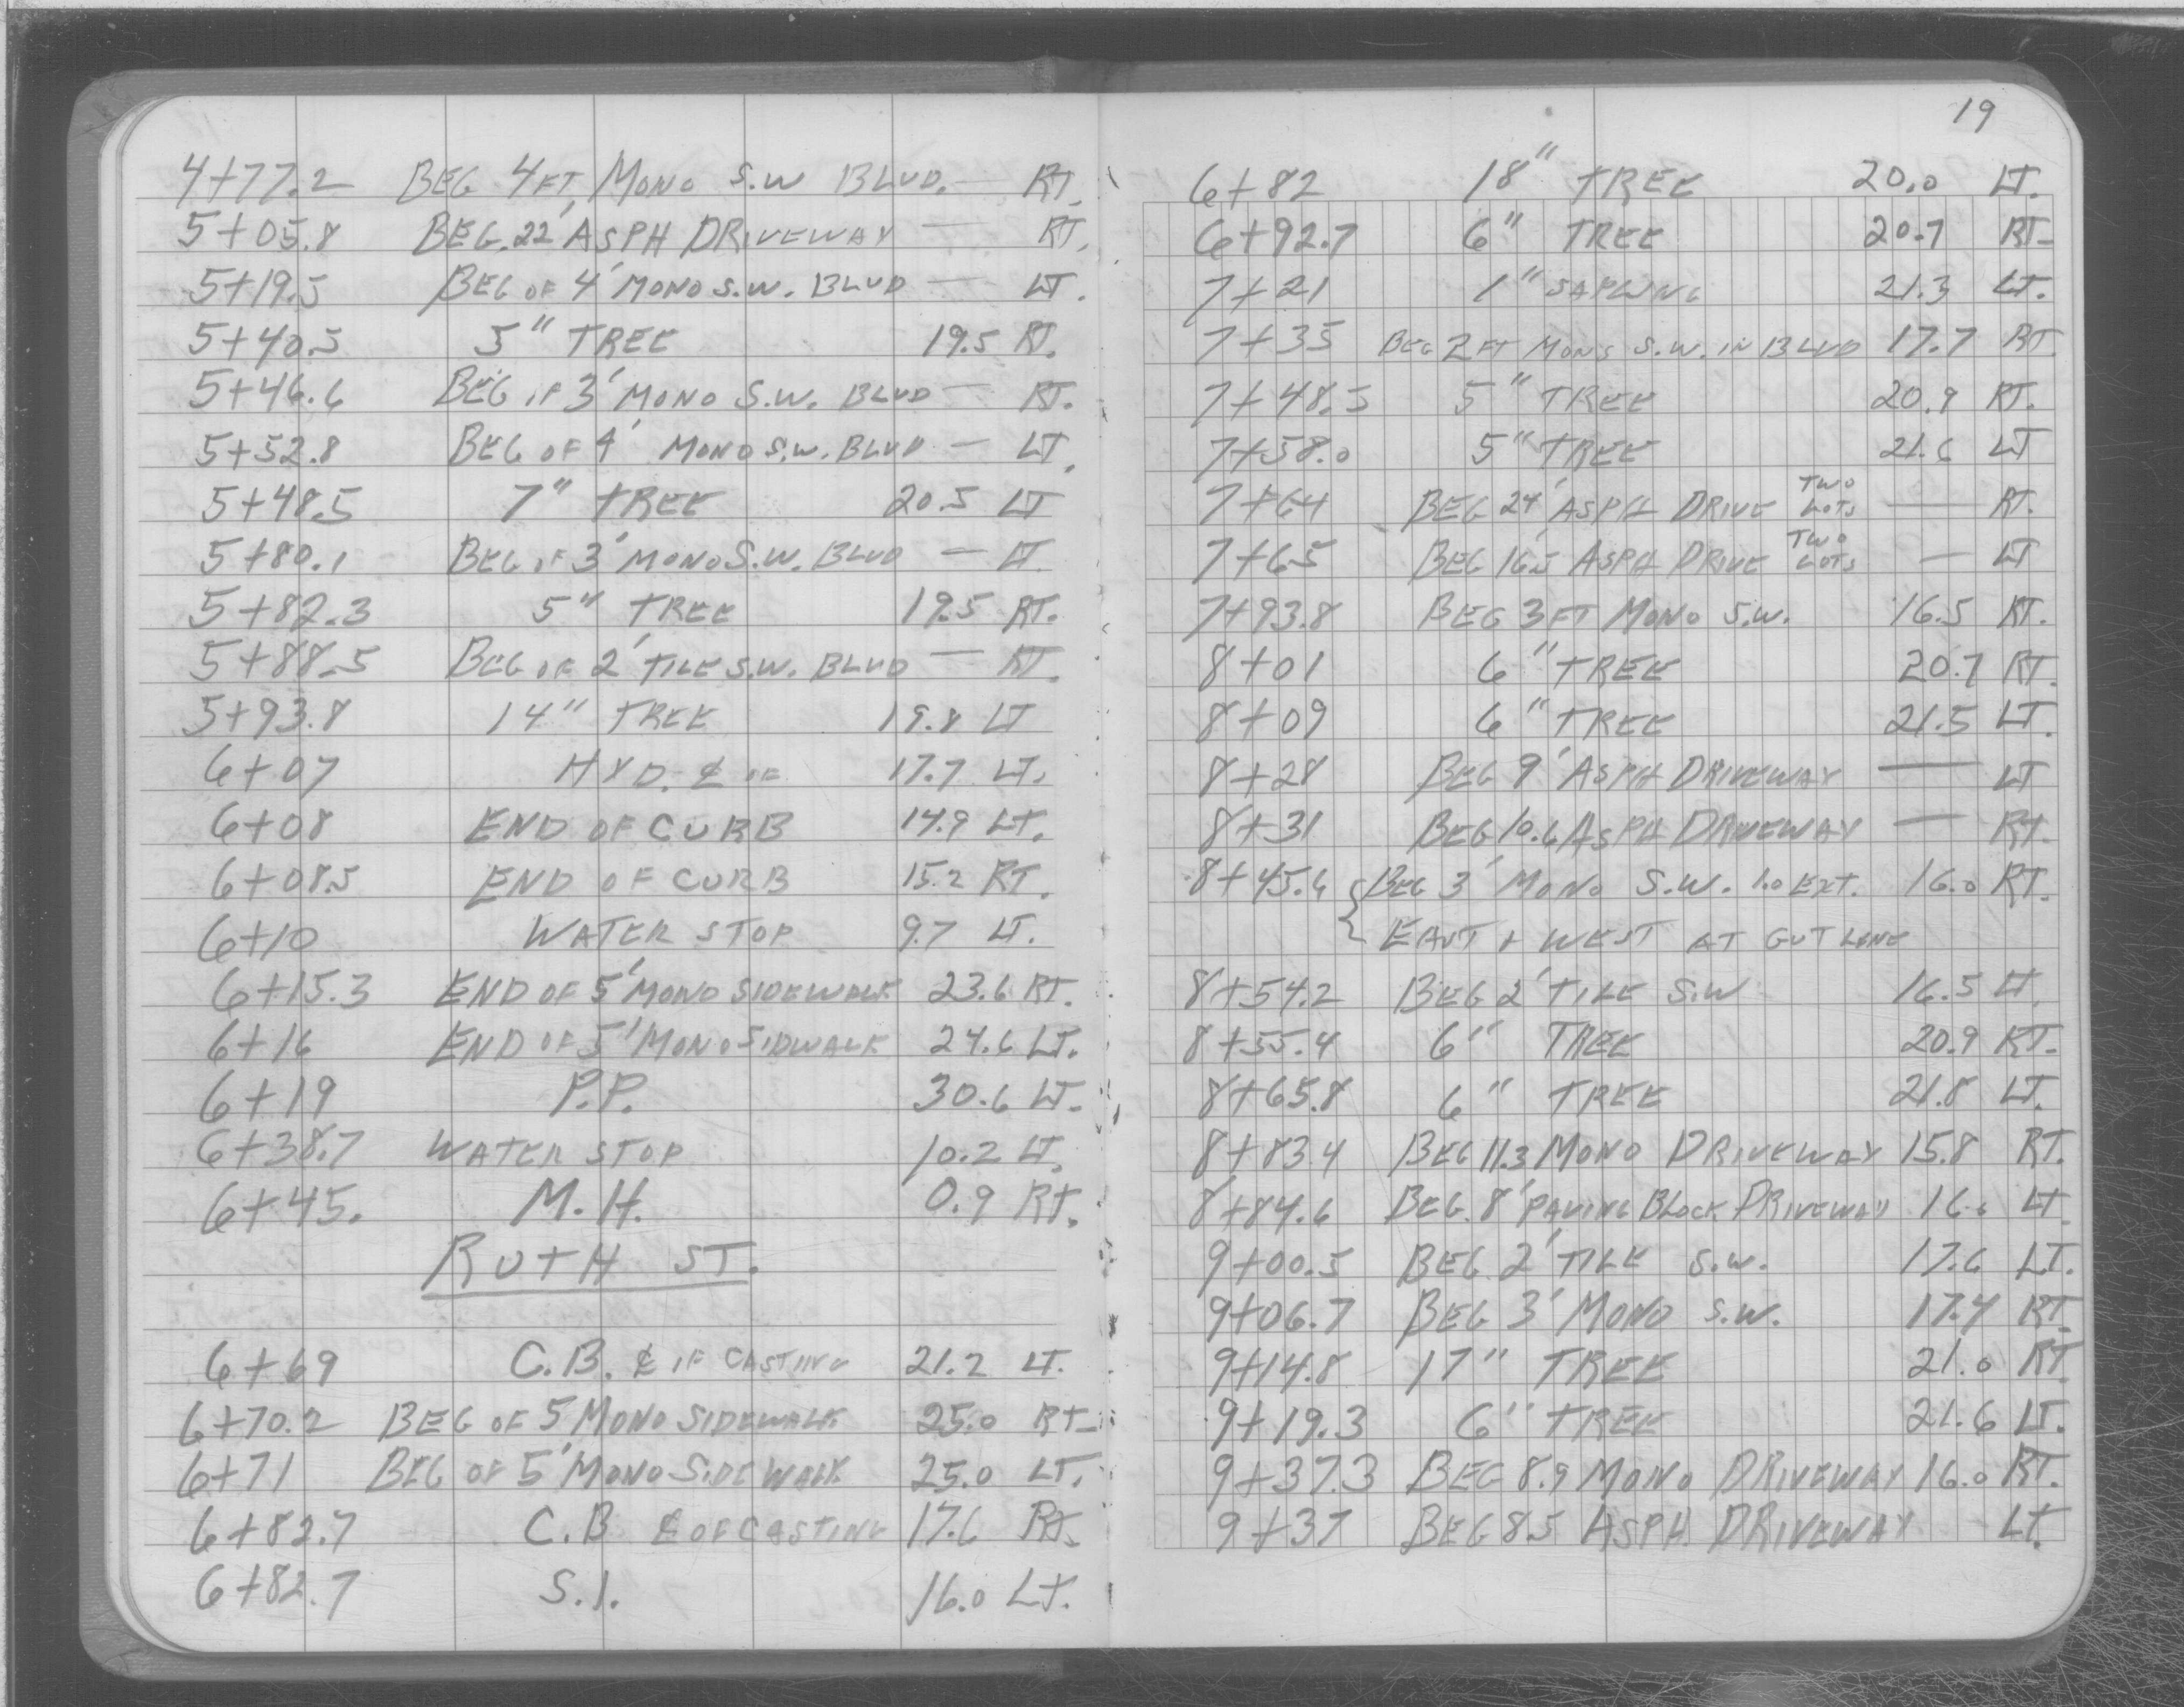 4+77.2 BEG 4FT, MONO S.W BLVD. — RT.
5+05.8 BEG. 22' ASPH DRIVEWAY — RT.
5+19.5 BEG OF 4' MONO S.W. BLVD — LT.
5+40.5 5" TREE 19.5 RT.
5+46.6 BEG OF 3' MONO S.W. BLVD — RT.
5+52.8 BEG OF 4' MONO S.W. BLVD — LT.
5+48.5 7" TREE 20.5 LT
5+80.1 BEG OF 3' MONO S.W. BLVD — LT
5+82.3 5" TREE 19.5 RT.
5+88.5 BEG OF 2' TILE S.W. BLVD — RT.
5+93.8 14" TREE 19.8 LT
6+07 HYD. ₵ OF 17.7 LT.
6+08 END OF CURB 14.9 LT.
6+08.5 END OF CURB 15.2 RT.
6+10 WATER STOP 9.7 LT.
6+15.3 END OF 5' MONO SIDEWALK 23.6 RT.
6+16 END OF 5' MONO SIDWALK 24.6 LT.
6+19 P.P. 30.6 LT.
6+38.7 WATER STOP 10.2 LT.
6+45. M.H. 0.9 RT.
RUTH ST.
6+69 C.B. ₵ OF CASTING 21.2 LT.
6+70.2 BEG OF 5' MONO SIDEWALK 25.0 RT
6+71 BEG OF 5' MONO SIDEWALK 25.0 LT.
6+82.7 C.B ₵ OF CASTING 17.6 RT.
6+82.7 S.I. 16.0 LT.
19
6+82 18" TREE 20.0 LT.
6+92.7 6" TREE 20.7 RT
7+21 1" SAPLING 21.3 LT.
7+35 BEG 2 FT MONO S.W. IN BLVD 17.7 RT.
7+48.5 5" TREE 20.9 RT.
7+58.0 5" TREE 21.6 LT
7+64 BEG 24' ASPH DRIVE TWO LOTS — RT.
7+65 BEG 16.5 ASPH DRIVE TWO LOTS — LT
7+93.8 BEG 3FT MONO S.W. 16.5 RT.
8+01 6" TREE 20.7 RT.
8+09 6" TREE 21.5 LT.
8+28 BEG 9' ASPH DRIVEWAY — LT
8+31 BEG 10.6 ASPH DRIVEWAY — RT.
8+45.6 BEG 3' MONO S.W. 1.0 EXT. 16.0 RT.
EAST & WEST AT GUT LINE
8+54.2 BEG 2' TILE S.W 16.5 LT.
8+55.4 6" TREE 20.9 RT.
8+65.8 6" TREE 21.8 LT.
8+83.4 BEG 11.3 MONO DRIVEWAY 15.8 RT.
8+84.6 BEG. 8' PAVING BLOCK DRIVEWAY LT.
9+00.5 BEG 2' TILE S.W. 17.6 LT.
9+06.7 BEG 3' MONO S.W. 17.4 RT.
9+14.8 17" TREE 21.0 RT
9+19.3 6" TREE 21.6 LT.
9+37.3 BEG 8.9 MONO DRIVEWAY 16.0 RT.
9+37 BEG 8.5 ASPH. DRIVEWAY LT.